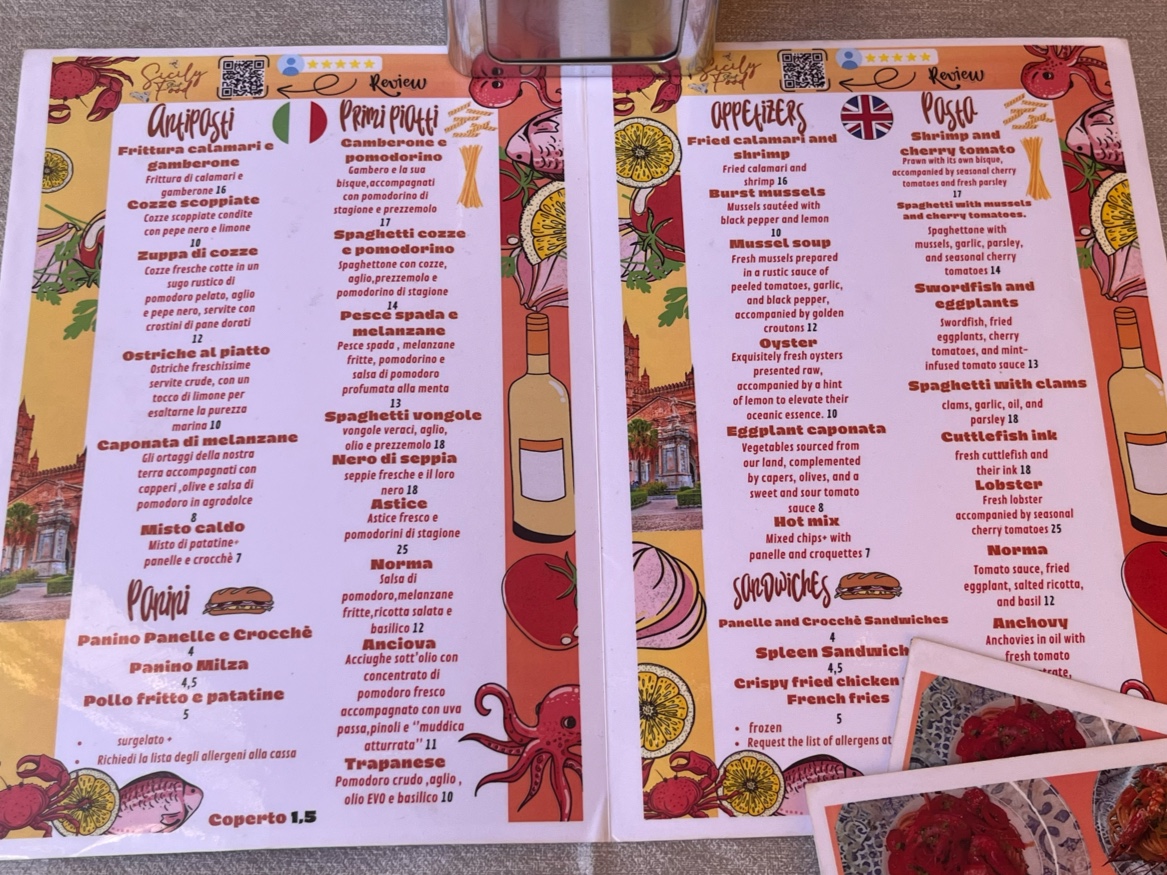 Sicily
Food
Review
Antipasti
Frittura calamari e
gamberone
Frittura di calamari e
gamberone 16
Cozze scoppiate
Cozze scoppiate condite
con pepe nero e limone
10
Zuppa di cozze
Cozze fresche cotte in un
sugo rustico di
pomodoro pelato, aglio
e pepe nero, servite con
crostini di pane dorati
12
Ostriche al piatto
Ostriche freschissime
servite crude, con un
tocco di limone per
esaltarne la purezza
marina 10
Caponata di melanzane
Gli ortaggi della nostra
terra accompagnati con
capperi ,olive e salsa di
pomodoro in agrodolce
8
Misto caldo
Misto di patatine+
panelle e crocchè 7
Panini
Panino Panelle e Crocchè
4
Panino Milza
4,5
Pollo fritto e patatine
5
• surgelato +
• Richiedi la lista degli allergeni alla cassa
Primi piatti
Gamberone e
pomodorino
Gambero e la sua
bisque,accompagnati
con pomodorino di
stagione e prezzemolo
17
Spaghetti cozze
e pomodorino
Spaghettone con cozze,
aglio,prezzemolo e
pomodorino di stagione
14
Pesce spada e
melanzane
Pesce spada , melanzane
fritte, pomodorino e
salsa di pomodoro
profumata alla menta
13
Spaghetti vongole
vongole veraci, aglio,
olio e prezzemolo 18
Nero di seppia
seppie fresche e il loro
nero 18
Astice
Astice fresco e
pomodorini di stagione
25
Norma
Salsa di
pomodoro,melanzane
fritte,ricotta salata e
basilico 12
Anciova
Acciughe sott'olio con
concentrato di
pomodoro fresco
accompagnato con uva
passa,pinoli e "muddica
atturrata" 11
Trapanese
Pomodoro crudo ,aglio ,
olio EVO e basilico 10
Coperto 1,5
Sicily
Food
Review
Appetizers
Fried calamari and
shrimp
Fried calamari and
shrimp 16
Burst mussels
Mussels sautéed with
black pepper and lemon
10
Mussel soup
Fresh mussels prepared
in a rustic sauce of
peeled tomatoes, garlic,
and black pepper,
accompanied by golden
croutons 12
Oyster
Exquisitely fresh oysters
presented raw,
accompanied by a hint
of lemon to elevate their
oceanic essence. 10
Eggplant caponata
Vegetables sourced from
our land, complemented
by capers, olives, and a
sweet and sour tomato
sauce 8
Hot mix
Mixed chips+ with
panelle and croquettes 7
Sandwiches
Panelle and Crocchè Sandwiches
4
Spleen Sandwich
4,5
Crispy fried chicken
French fries
5
• frozen
• Request the list of allergens at
Pasta
Shrimp and
cherry tomato
Prawn with its own bisque,
accompanied by seasonal cherry
tomatoes and fresh parsley
17
Spaghetti with mussels
and cherry tomatoes.
Spaghettone with
mussels, garlic, parsley,
and seasonal cherry
tomatoes 14
Swordfish and
eggplants
Swordfish, fried
eggplants, cherry
tomatoes, and mint-
infused tomato sauce 13
Spaghetti with clams
clams, garlic, oil, and
parsley 18
Cuttlefish ink
fresh cuttlefish and
their ink 18
Lobster
Fresh lobster
accompanied by seasonal
cherry tomatoes 25
Norma
Tomato sauce, fried
eggplant, salted ricotta,
and basil 12
Anchovy
Anchovies in oil with
fresh tomato